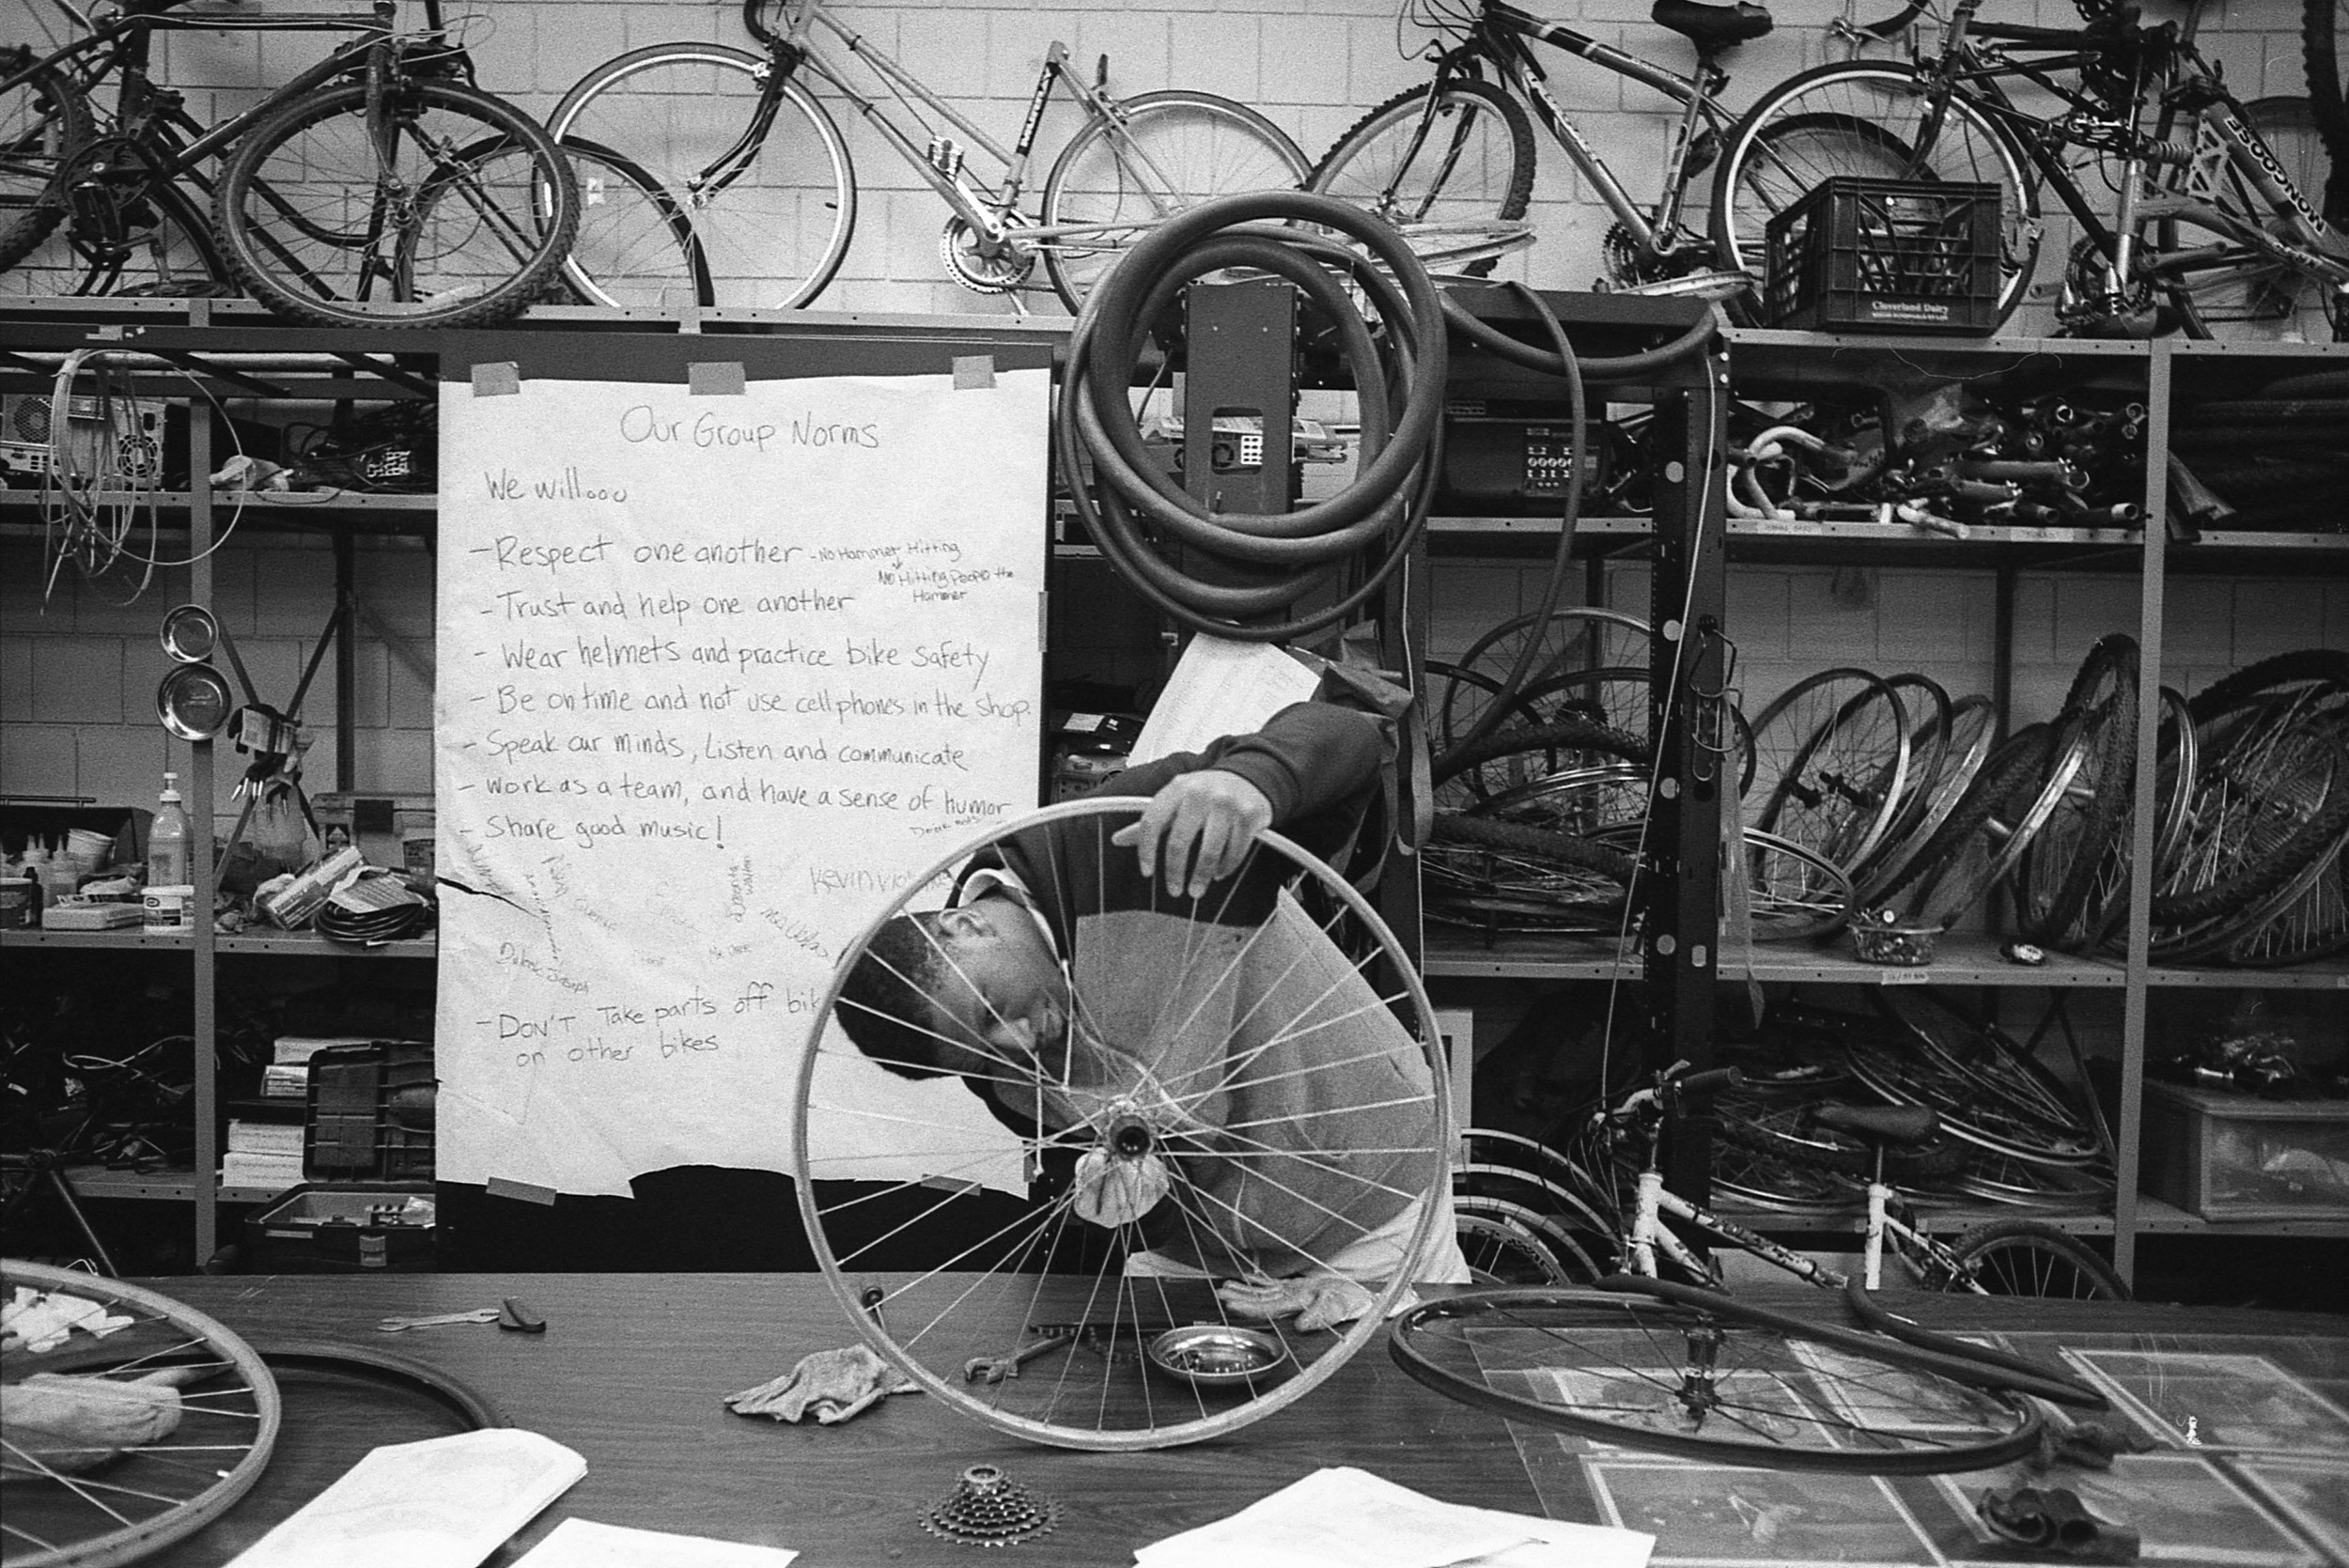 MONGOOSE
Cloverland Dairy
Our Group Norms
We will...
- Respect one another - No Hammer Hitting
No Hitting People the
Hammer
- Trust and help one another
- Wear helmets and practice bike safety
- Be on time and not use cell phones in the shop.
- Speak our minds, Listen and communicate
- Work as a team, and have a sense of humor
- Share good music!
Kevin
- DON'T Take parts off
on other bikes